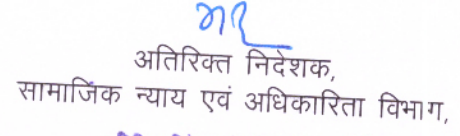 अतिरिक्त निदेशक,
सामाजिक न्याय एवं अधिकारिता विभाग,